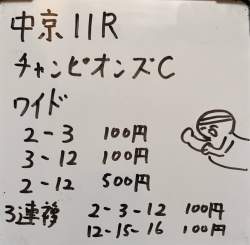 中京 11R
チャンピオンズC
ワイド
2-3 100円
3-12 100円
2-12 500円
3連複 2-3-12 100円
12-15-16 100円